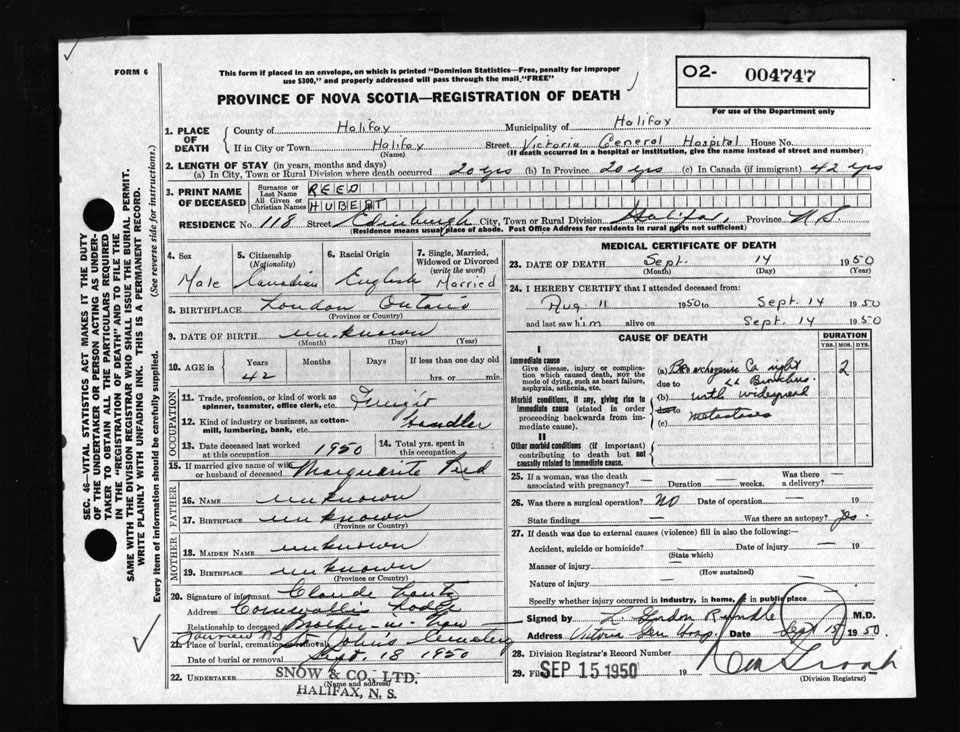 FORM 6
This form if placed in an envelope, on which is printed "Dominion Statistics—Free, penalty for improper
use $300," and properly addressed will pass through the mail "FREE"
PROVINCE OF NOVA SCOTIA—REGISTRATION OF DEATH
O2- 004747
For use of the Department only
SEC. 46—VITAL STATISTICS ACT MAKES IT THE DUTY
OF THE UNDERTAKER OR PERSON ACTING AS UNDER-
TAKER TO OBTAIN ALL THE PARTICULARS REQUIRED
IN THE "REGISTRATION OF DEATH" AND TO FILE THE
SAME WITH THE DIVISION REGISTRAR WHO SHALL ISSUE THE BURIAL PERMIT.
WRITE PLAINLY WITH UNFADING INK. THIS IS A PERMANENT RECORD.
Every item of information should be carefully supplied. (See reverse side for instructions.)
1. PLACE OF DEATH
County of Halifax Municipality of Halifax
If in City or Town Halifax Street Victoria General Hospital House No.
(Name) (If death occurred in a hospital or institution, give the name instead of street and number)
2. LENGTH OF STAY (in years, months and days)
(a) In City, Town or Rural Division where death occurred 20 yrs (b) In Province 20 yrs (c) In Canada (if immigrant) 42 yrs
3. PRINT NAME OF DECEASED
Surname or Last Name REED
All Given or Christian Names HUBERT
RESIDENCE No. 118 Street Edinburgh City, Town or Rural Division Halifax, Province N.S.
(Residence means usual place of abode. Post Office Address for residents in rural parts not sufficient)
4. Sex Male
5. Citizenship (Nationality) Canadian
6. Racial Origin English
7. Single, Married, Widowed or Divorced (write the word) Married
8. BIRTHPLACE London Ontario
(Province or Country)
9. DATE OF BIRTH unknown
(Month) (Day) (Year)
10. AGE in Years 42 Months Days If less than one day old hrs. or min.
OCCUPATION
11. Trade, profession, or kind of work as spinner, teamster, office clerk, etc. Freight
12. Kind of industry or business, as cotton-mill, lumbering, bank, etc. Handler
13. Date deceased last worked at this occupation 1950
14. Total yrs. spent in this occupation
15. If married give name of wife or husband of deceased Marguerite Reed
FATHER
16. NAME unknown
17. BIRTHPLACE unknown
(Province or Country)
MOTHER
18. MAIDEN NAME unknown
19. BIRTHPLACE unknown
(Province or Country)
20. Signature of informant Claude
Address Cornwallis Lodge
Relationship to deceased Brother-in-law
21. Place of burial, cremation or removal St. John's Cemetery
Date of burial or removal Sept. 18 1950
22. UNDERTAKER SNOW & CO., LTD.
(Name and address)
HALIFAX, N. S.
MEDICAL CERTIFICATE OF DEATH
23. DATE OF DEATH Sept. 14 1950
(Month) (Day) (Year)
24. I HEREBY CERTIFY that I attended deceased from:
Aug. 11 1950 to Sept. 14 1950
and last saw him alive on Sept. 14 1950
CAUSE OF DEATH
DURATION
YRS. MOS. DYS.
I
Immediate cause
Give disease, injury or complication which caused death, not the mode of dying, such as heart failure, asphyxia, asthenia, etc.
(a) Bronchogenic Ca right 2
due to Bronchus.
Morbid conditions, if any, giving rise to immediate cause (stated in order proceeding backwards from immediate cause).
(b) with widespread
due to metastases
(c)
II
Other morbid conditions (if important) contributing to death but not causally related to immediate cause.
25. If a woman, was the death associated with pregnancy? — Duration — weeks. Was there a delivery? —
26. Was there a surgical operation? NO Date of operation — 19
State findings — Was there an autopsy? yes
27. If death was due to external causes (violence) fill in also the following:—
Accident, suicide or homicide? — Date of injury — 19
(State which)
Manner of injury —
(How sustained)
Nature of injury —
Specify whether injury occurred in industry, in home, or in public place
Signed by L. Gordon M.D.
Address Victoria Gen Hosp. Date Sept 15 1950.
28. Division Registrar's Record Number
29. Filed SEP 15 1950 19
(Division Registrar)